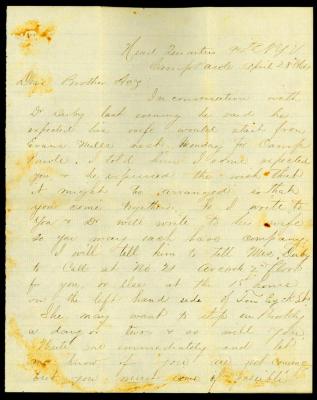 Head Quarters N.Y.V
Camp April 28th
Dear Brother
In conversation with
Dr last evening he said he
expected his wife would start from
Evans Mills next Monday for Camp
I told him I some expected
you & he expressed the wish that
it might be arranged so that
you come together. So I write to
you & Dr will write to his wife
so you may each have company
I will tell him to tell Mrs
to Call at No. 21 2nd floor
for you, or else at the 15th house
on the left hand side of Ten Eyck St
She may want to stop in
a day or two & so will you.
Write me immediately and let
me know if you are not coming
but you must come if possible